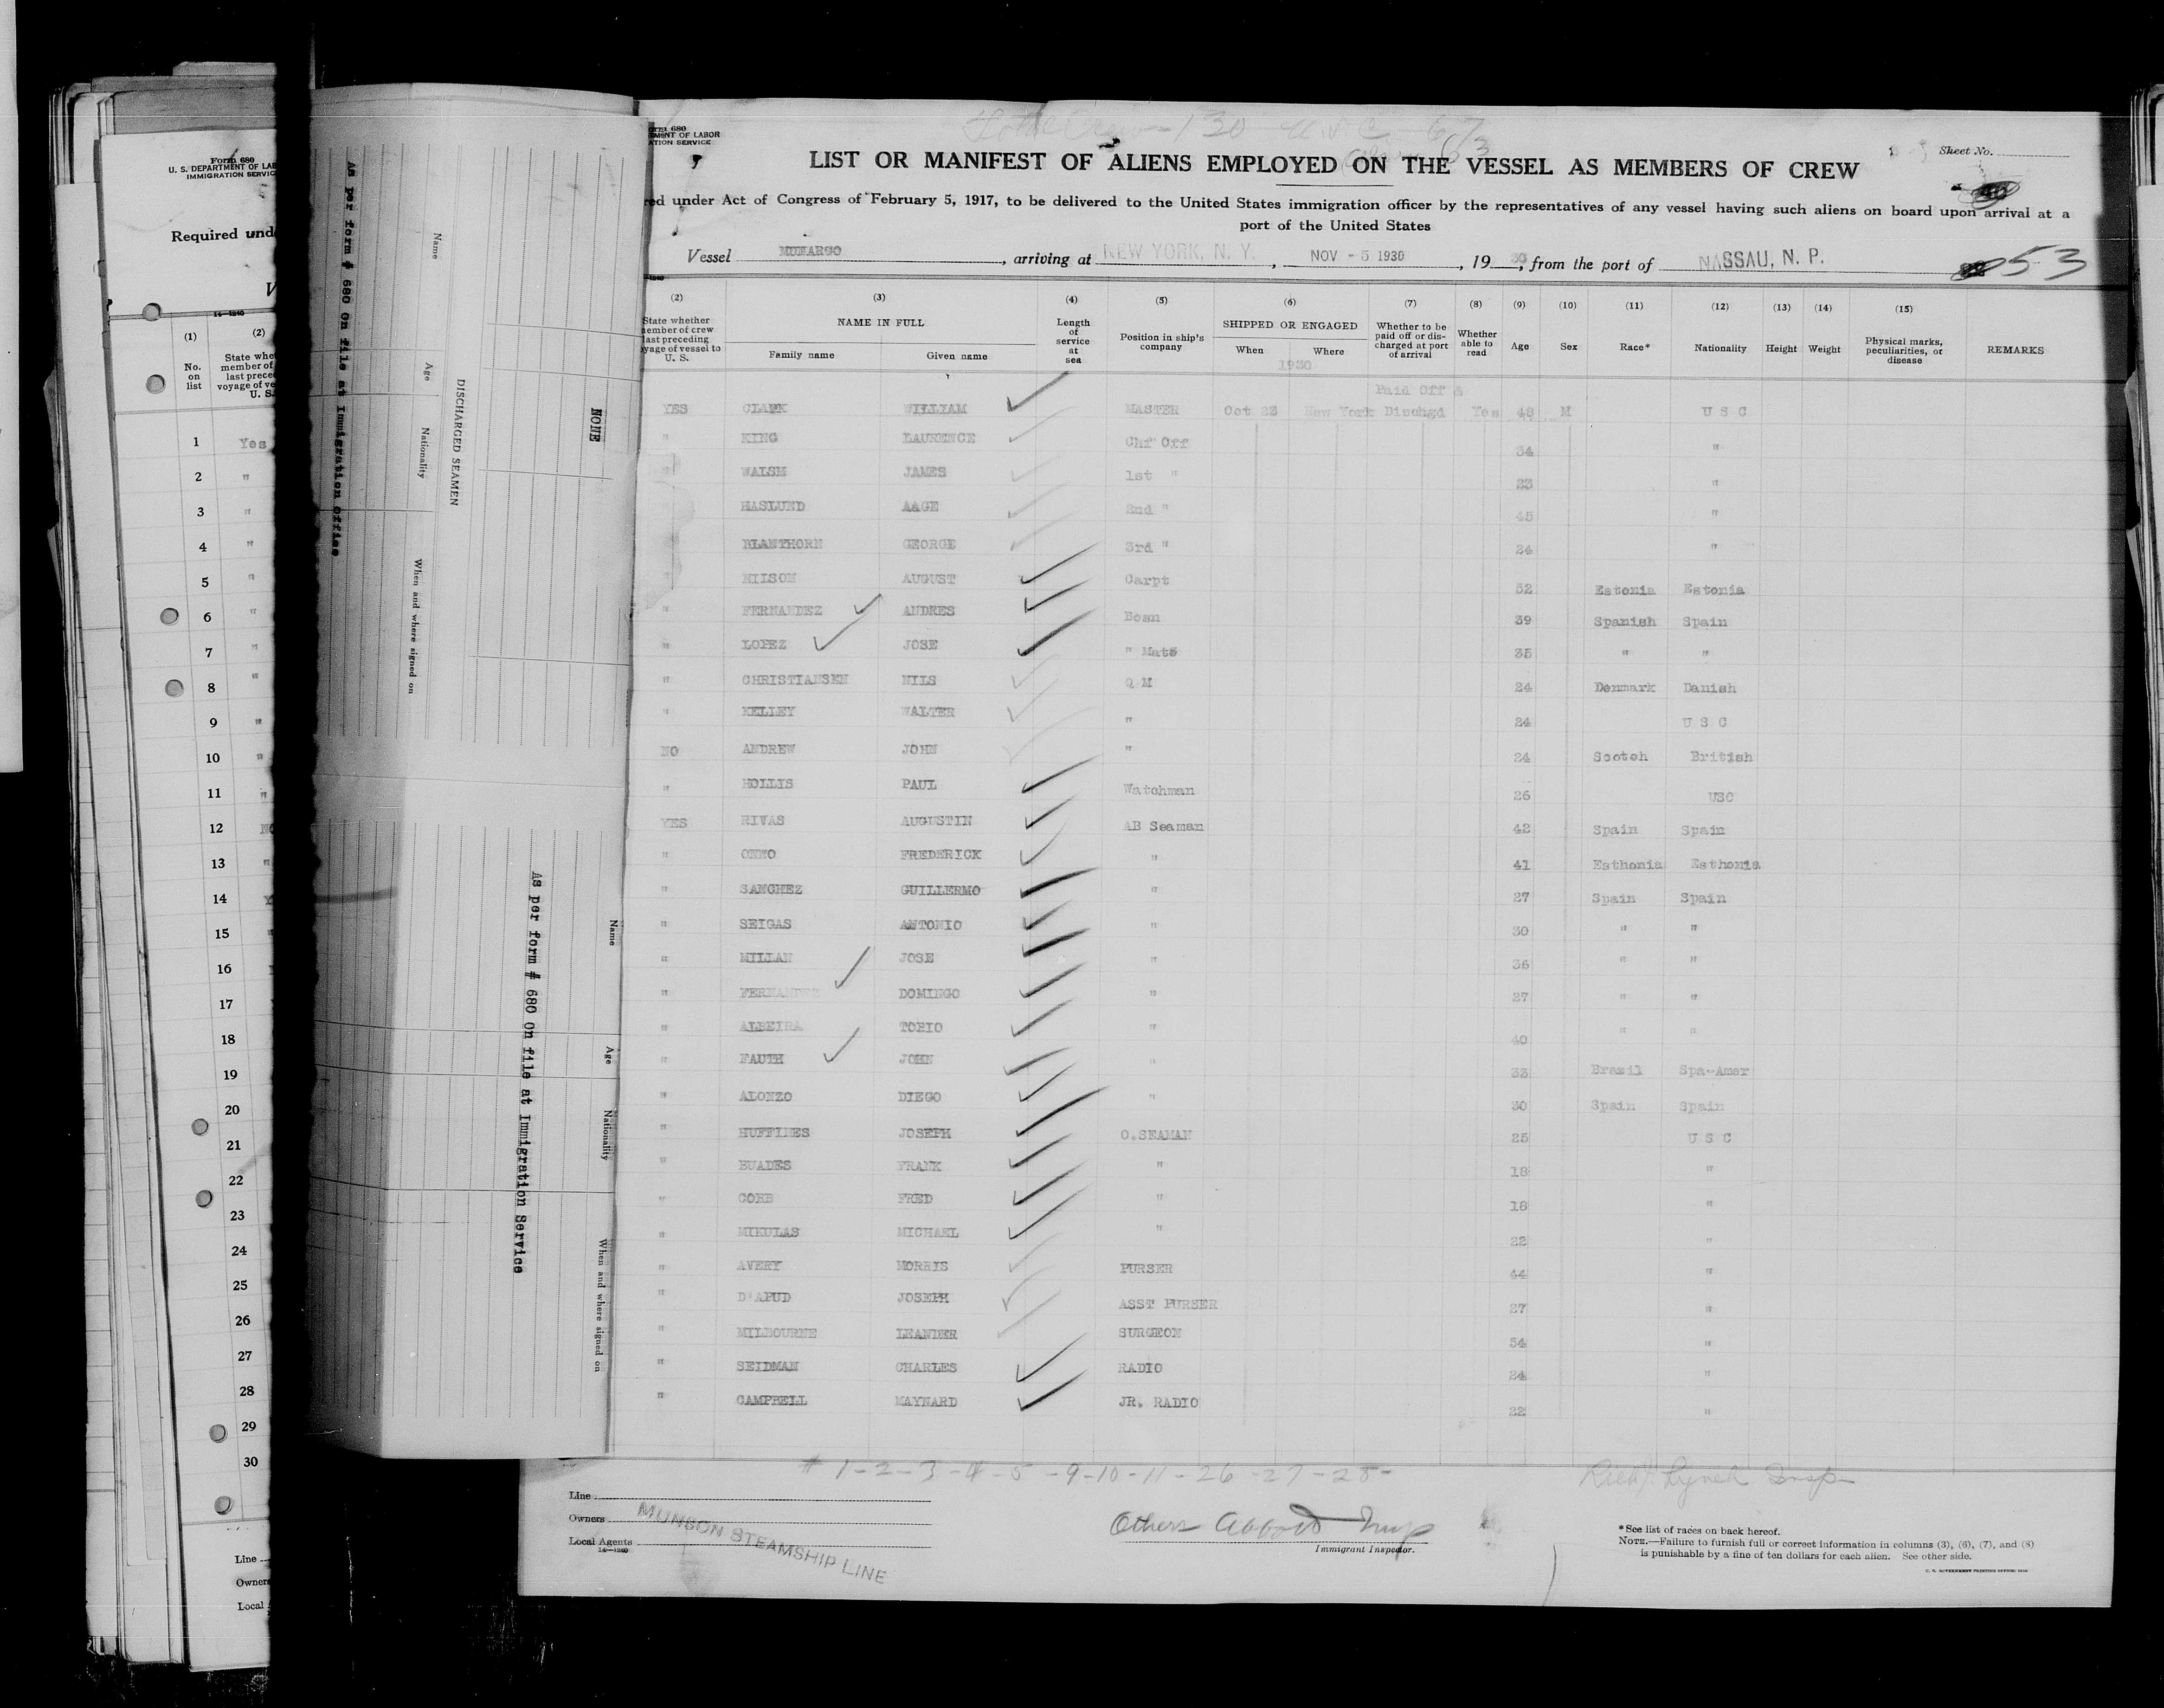 Form 680
U. S. DEPARTMENT OF LAB
IMMIGRATION SERVIC
Required unde
V
14—1240
(1)
(2)
No.
on
list
State whe
member of
last prece
voyage of ve
U. S.
1 Yes
2 "
3 "
4 "
5 "
6 "
7 "
8 "
9 "
10 "
11 "
12 NO
13 "
14 Y
15 "
16
17
18
19
20
21
22
23
24
25
26
27
28
29
30
Line
Owners
Local
As per form # 680 On file at Immigration Office
Name
Age
Nationality
When and where signed on
DISCHARGED SEAMEN
NONE
As per form # 680 On file at Immigration Service
Name
Age
Nationality
When and where signed on
680
MENT OF LABOR
ATION SERVICE
130 U.S.C. 67
63
LIST OR MANIFEST OF ALIENS EMPLOYED ON THE VESSEL AS MEMBERS OF CREW
Sheet No.
red under Act of Congress of February 5, 1917, to be delivered to the United States immigration officer by the representatives of any vessel having such aliens on board upon arrival at a
port of the United States
Vessel MUNARGO, arriving at NEW YORK, N. Y., NOV - 5 1930, 19 30, from the port of NASSAU, N. P.
53
(2) (3) (4) (5) (6) (7) (8) (9) (10) (11) (12) (13) (14) (15)
State whether
member of crew
last preceding
yage of vessel to
U. S.
NAME IN FULL
Family name Given name
Length
of
service
at
sea
Position in ship's
company
SHIPPED OR ENGAGED
When Where
1930
Whether to be
paid off or dis-
charged at port
of arrival
Whether
able to
read
Age
Sex
Race*
Nationality
Height
Weight
Physical marks,
peculiarities, or
disease
REMARKS
Paid Off &
YES CLARK WILLIAM MASTER Oct 23 New York Dischgd Yes 48 M U S C
" KING LAURENCE Chf Off 34 "
WALSH JAMES 1st " 23 "
HASLUND AAGE 2nd " 45 "
BLANTHORN GEORGE 3rd " 24 "
NILSON AUGUST Carpt 52 Estonia Estonia
" FERNANDEZ ANDRES Bosn 39 Spanish Spain
" LOPEZ JOSE " Mate 35 " "
" CHRISTIANSEN NILS Q M 24 Denmark Danish
" KELLEY WALTER " 24 U S C
NO ANDREW JOHN " 24 Scotch British
" HOLLIS PAUL Watchman 26 USC
YES RIVAS AUGUSTIN AB Seaman 42 Spain Spain
" ONNO FREDERICK " 41 Esthonia Esthonia
" SANCHEZ GUILLERMO " 27 Spain Spain
" SEIGAS ANTONIO " 30 " "
" MILLAN JOSE " 36 " "
" FERNANDEZ DOMINGO " 27 " "
" ALBEIRA TORIO " 40 " "
" FAUTH JOHN " 33 Brazil Spa-Amer
" ALONZO DIEGO " 30 Spain Spain
" HUFFINES JOSEPH O.SEAMAN 25 U S C
" BUADES FRANK " 18 "
" COBB FRED " 18 "
" MIKULAS MICHAEL " 22 "
" AVERY MORRIS PURSER 44 "
" D'APUD JOSEPH ASST PURSER 27 "
" MILBOURNE LEANDER SURGEON 54 "
" SEIDMAN CHARLES RADIO 24 "
" CAMPBELL MAYNARD JR. RADIO 22 "
# 1-2-3-4-5-9-10-11-26-27-28-
Lynch Insp
Line
Owners
Local Agents
14—1240
MUNSON STEAMSHIP LINE
Others Abbott Insp
Immigrant Inspector.
*See list of races on back hereof.
NOTE.—Failure to furnish full or correct information in columns (3), (6), (7), and (8)
is punishable by a fine of ten dollars for each alien. See other side.